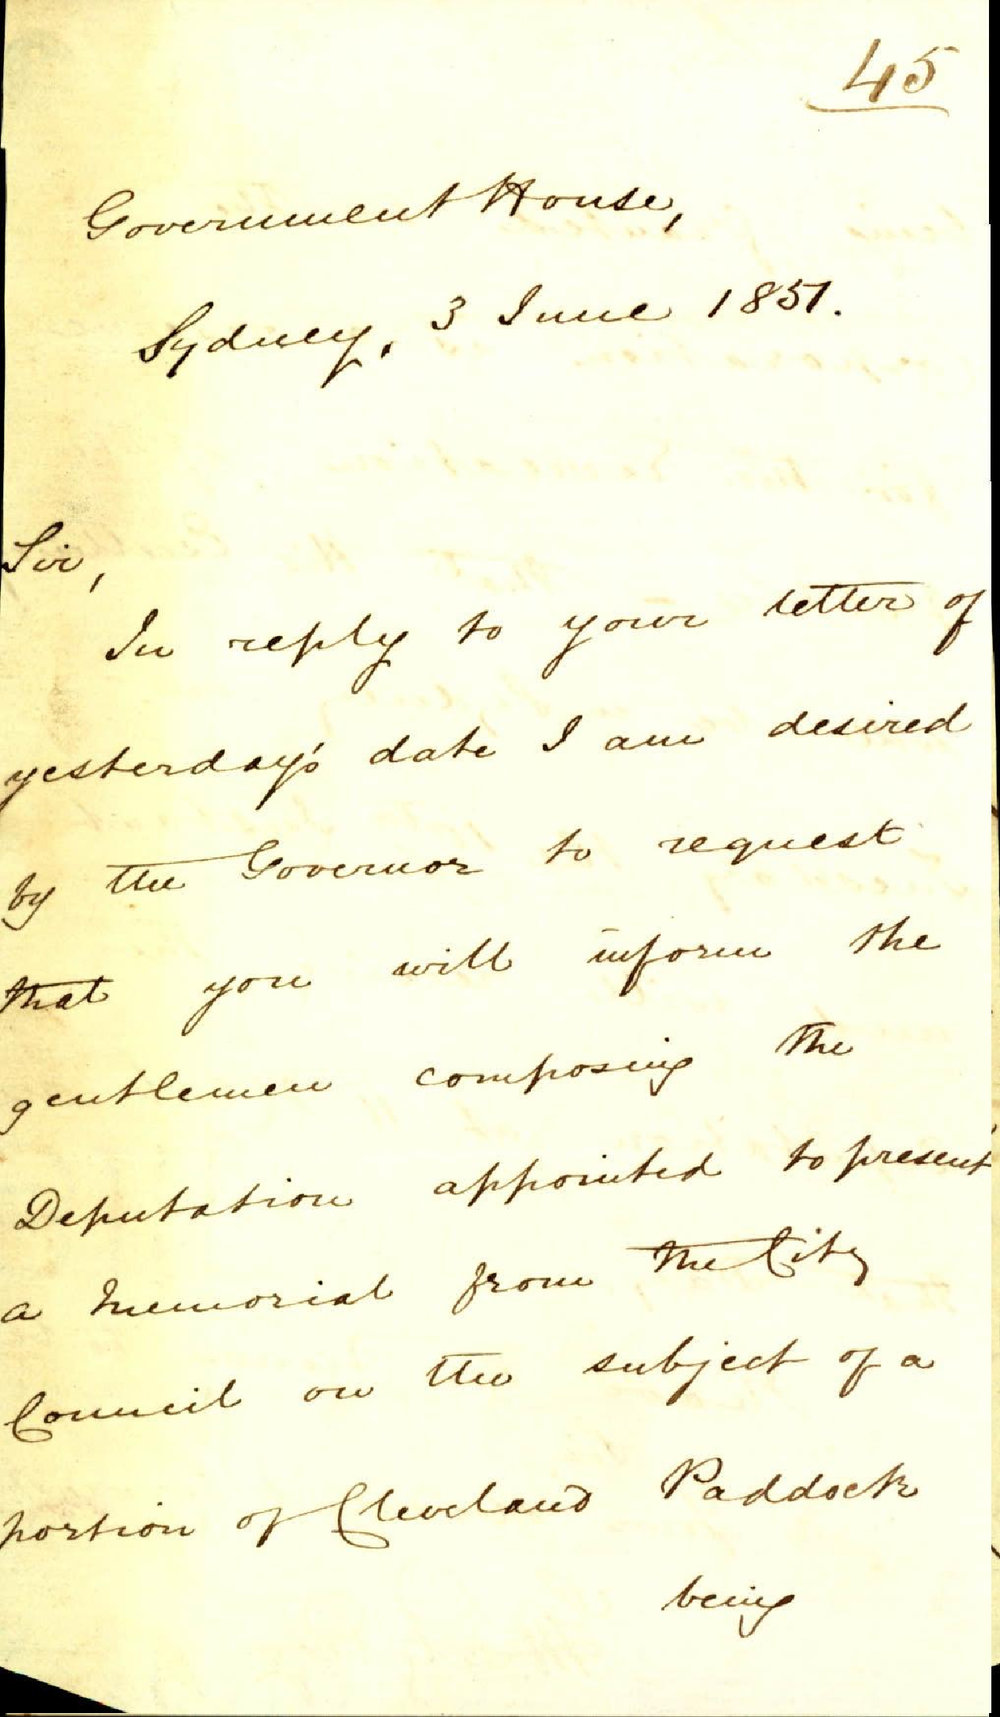 45
Government House,
Sydney, 3 June 1851.
Sir,
In reply to your letter of
yesterday's date I am desired
by the Governor to request
that you will inform the
gentlemen composing the
Deputation appointed to present
a memorial from the City
Council on the subject of a
portion of Cleveland Paddock
being